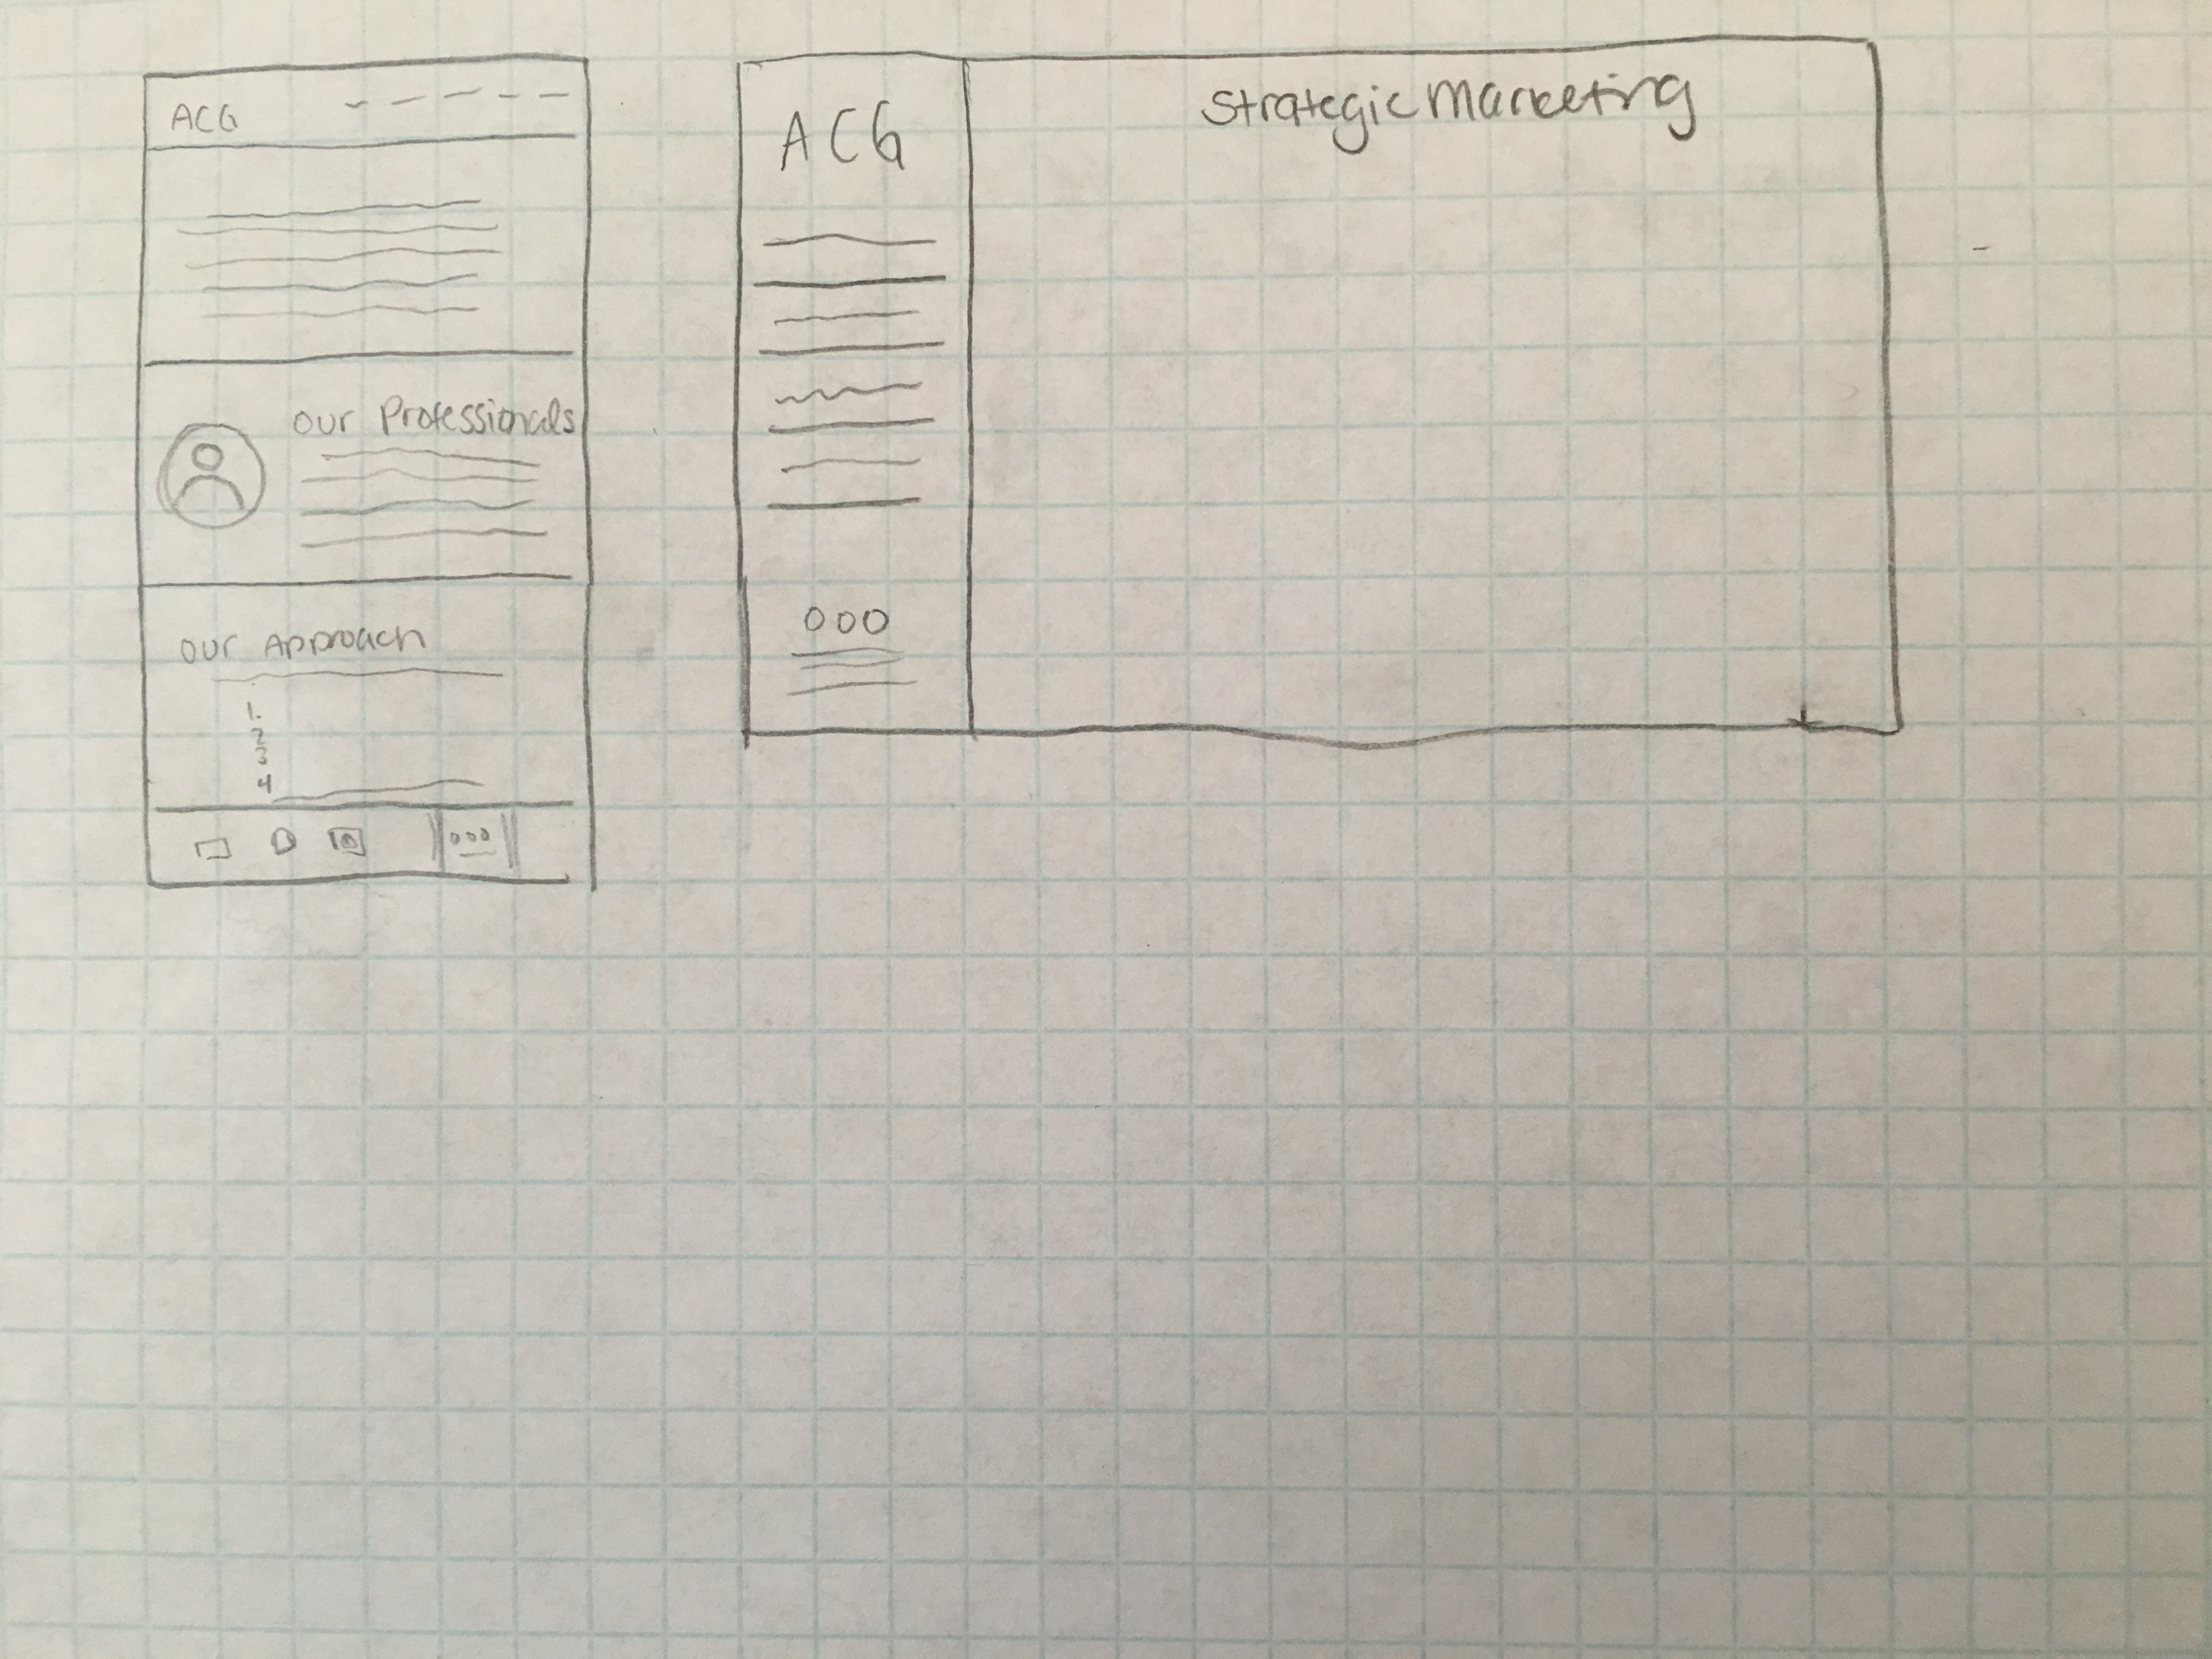 ACG
Our Professionals
Our Approach
1.
2
3
4
ACG
Strategic Marketing